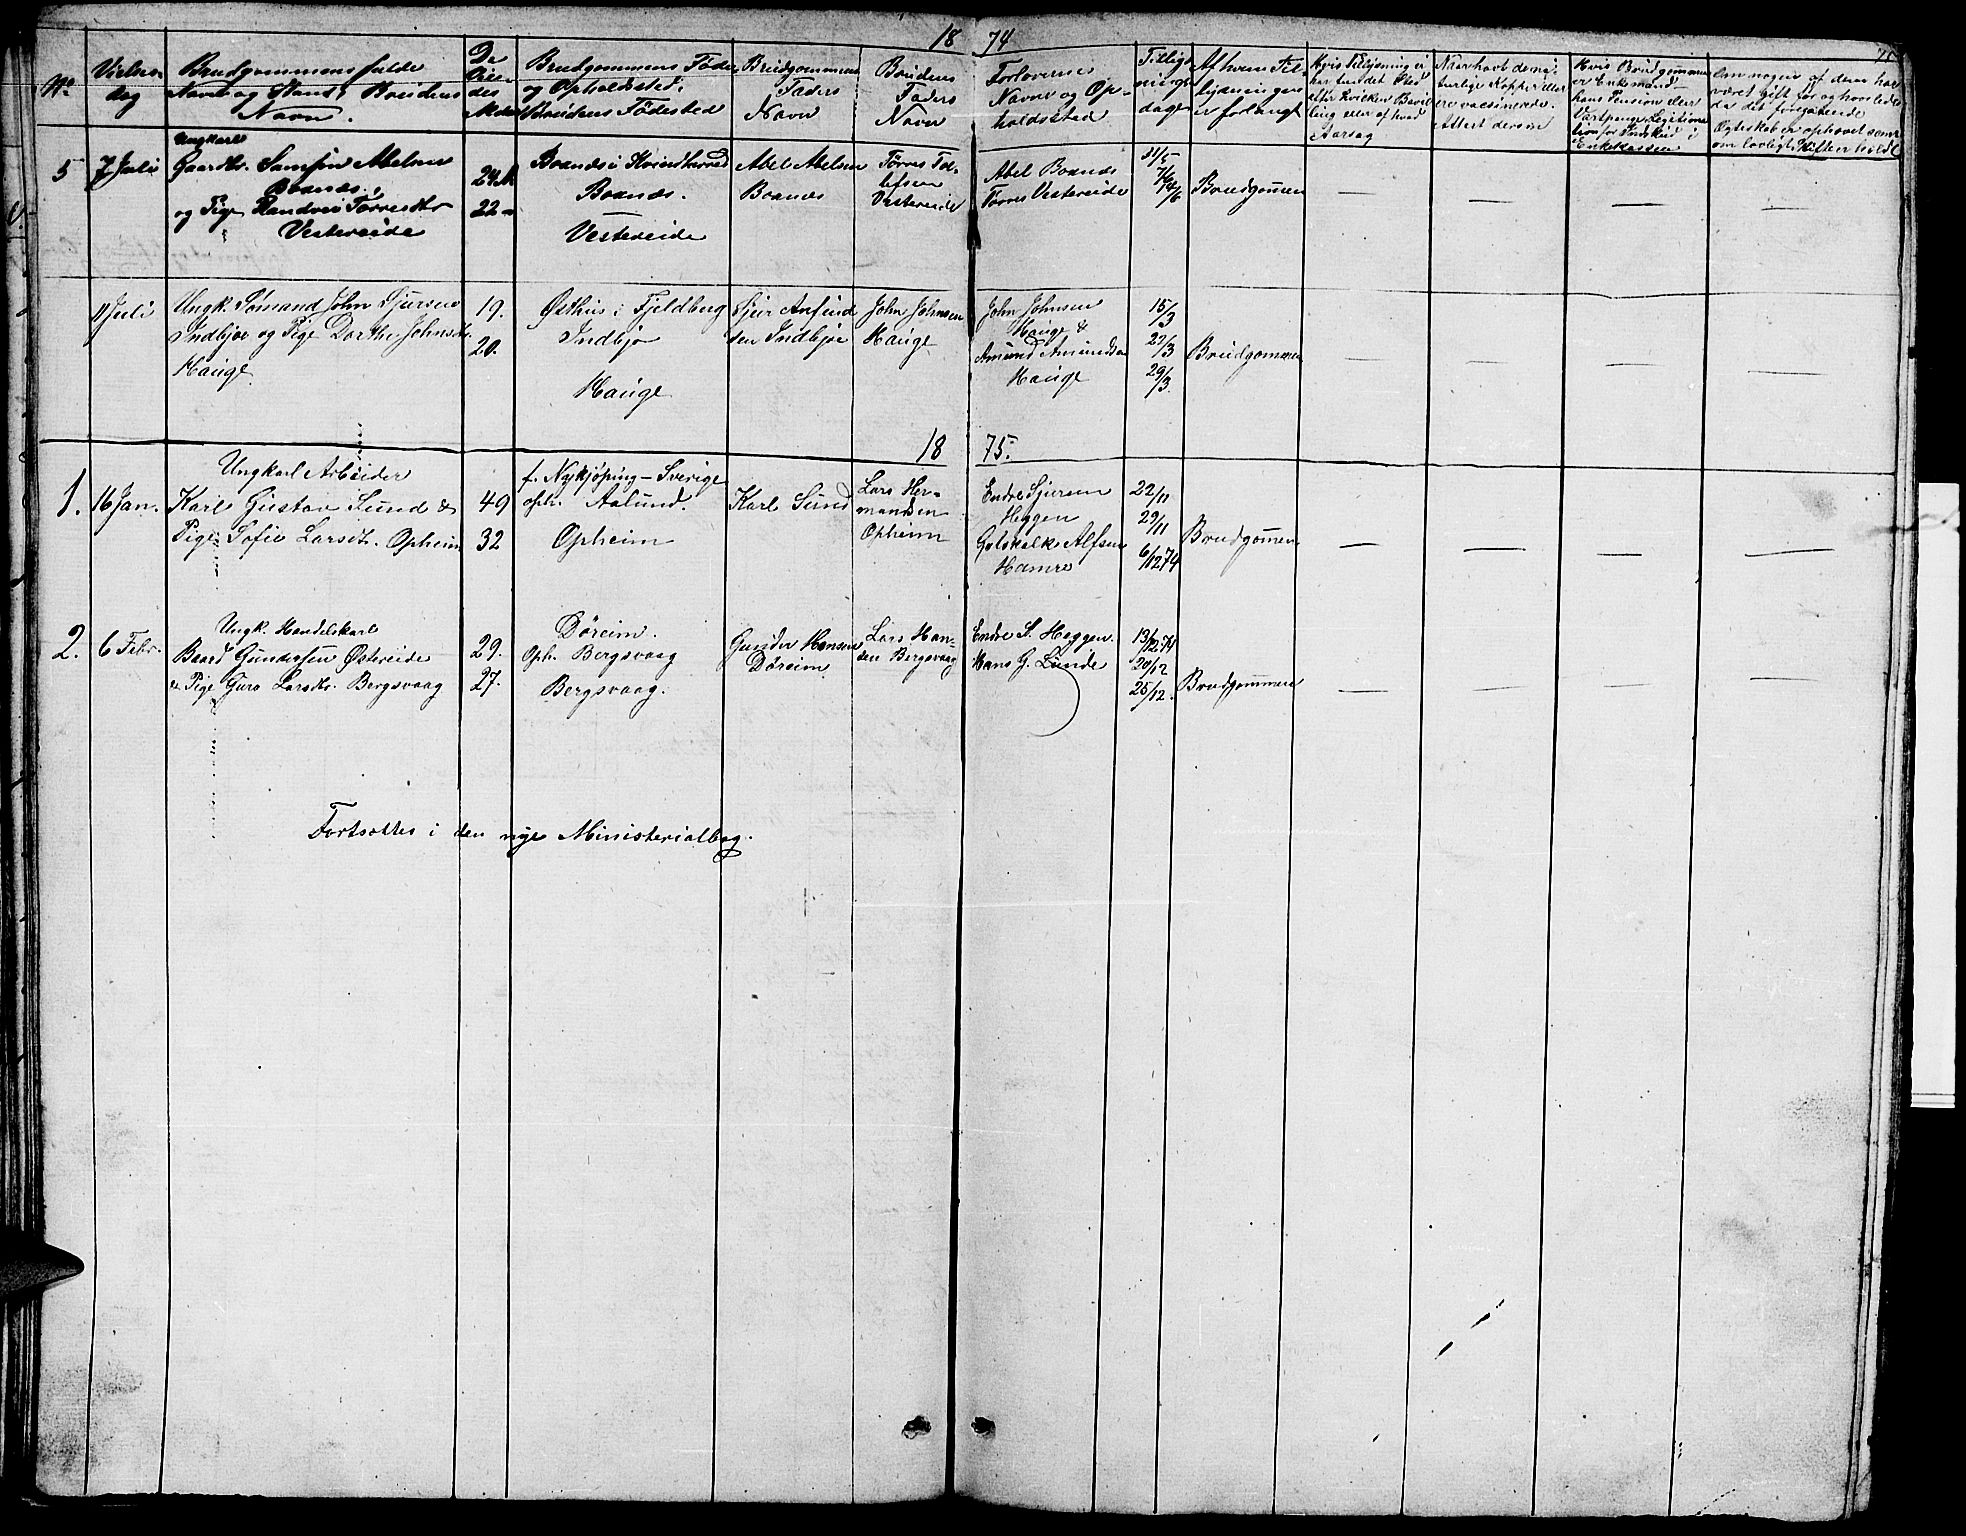 18 74
77
No
Vielses-
dag
Brudgommens fulde
Navn og Stand, Brudens
Navn.
De
Viel-
des
Alder
Brudgommens Føde-
og Opholdssted;
Brudens Fødested
Brudgommens
Faders
Navn
Brudens
Faders
Navn
Forlovernes
Navne og Op-
holdssted
Tillys-
nings-
dage
Af hvem Til-
lysningen
er forlangt
Hvis Tillysning ei
har fundet Sted
efter hvilken Bevil-
ling eller af hvad
Aarsag
Naar havt de na-
turlige Kopper eller
ere vaksinerede.
Attest derom
Hvis Brudgommen
er Enkemand
hans Pension eller
Legitima-
tion for Indskud i
Enkekassen
Om nogen af dem har
været gift før og hvorledes
da det foregaaende
Ægteskab er ophævet samt
om lovligt Skifte er holdt
5
7 Juli
Ungkarl
Gaardbr. Samson Abelsen
Boanæs
og Pige Randvei Tørresdtr
Vestereide
24
22
Boanæs i Kvindherred
Boanæs.
Vestereide
Abel Abelsen
Boanæs
Tørres Tol-
lefsen
Vestereide
Abel Boanæs
Tørres Vestereide
31/5
7/6 74
14/6
Brudgommen
11 Juli
Ungk. Sømand John Sjursen
Indbjoe og Pige Dorthe Johnsdtr.
Hauge
19.
20.
Østhus i Fjeldberg
Indbjo
Hauge
Sjur Anfind
sen Indbjoe
John Johnsen
Hauge
John Johnsen
Hauge &
Amund Amundsen
Hauge
15/3
22/3
29/3
Brudgommen
18 75.
1.
16 Jan.
Ungkarl Arbeider
Karl Gustav Lund &
Pige Sofie Larsdtr. Opheim
49
32
f. Nykjøping - Sverige
oph. Aalund.
Opheim
Karl Lund
Lars Her-
mandsen
Opheim
Endre Sjursen
Heggen
Gotskalk Alfsen
Hamre
22/11
29/11
6/12 74
Brudgommen
2.
6 Febr.
Ungk. Handelskarl
Baard Gundersen Østereide
& Pige Guro Larsdtr. Bergsvaag
29.
27.
Døreim.
Oph. Bergsvaag
Bergsvaag.
Gunder Hansen
Døreim
Lars Han-
sen Bergsvaag
Endre S. Heggen
Hans G. Lunde
13/12 74
20/12
25/12.
Brudgommen
Fortsættes i den nye Ministerialbog.